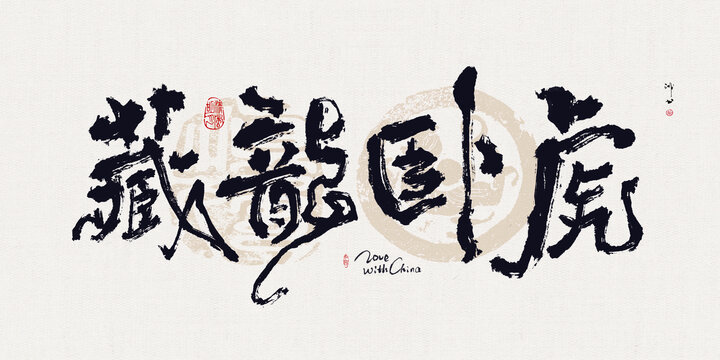 藏龍卧虎
Love
with China